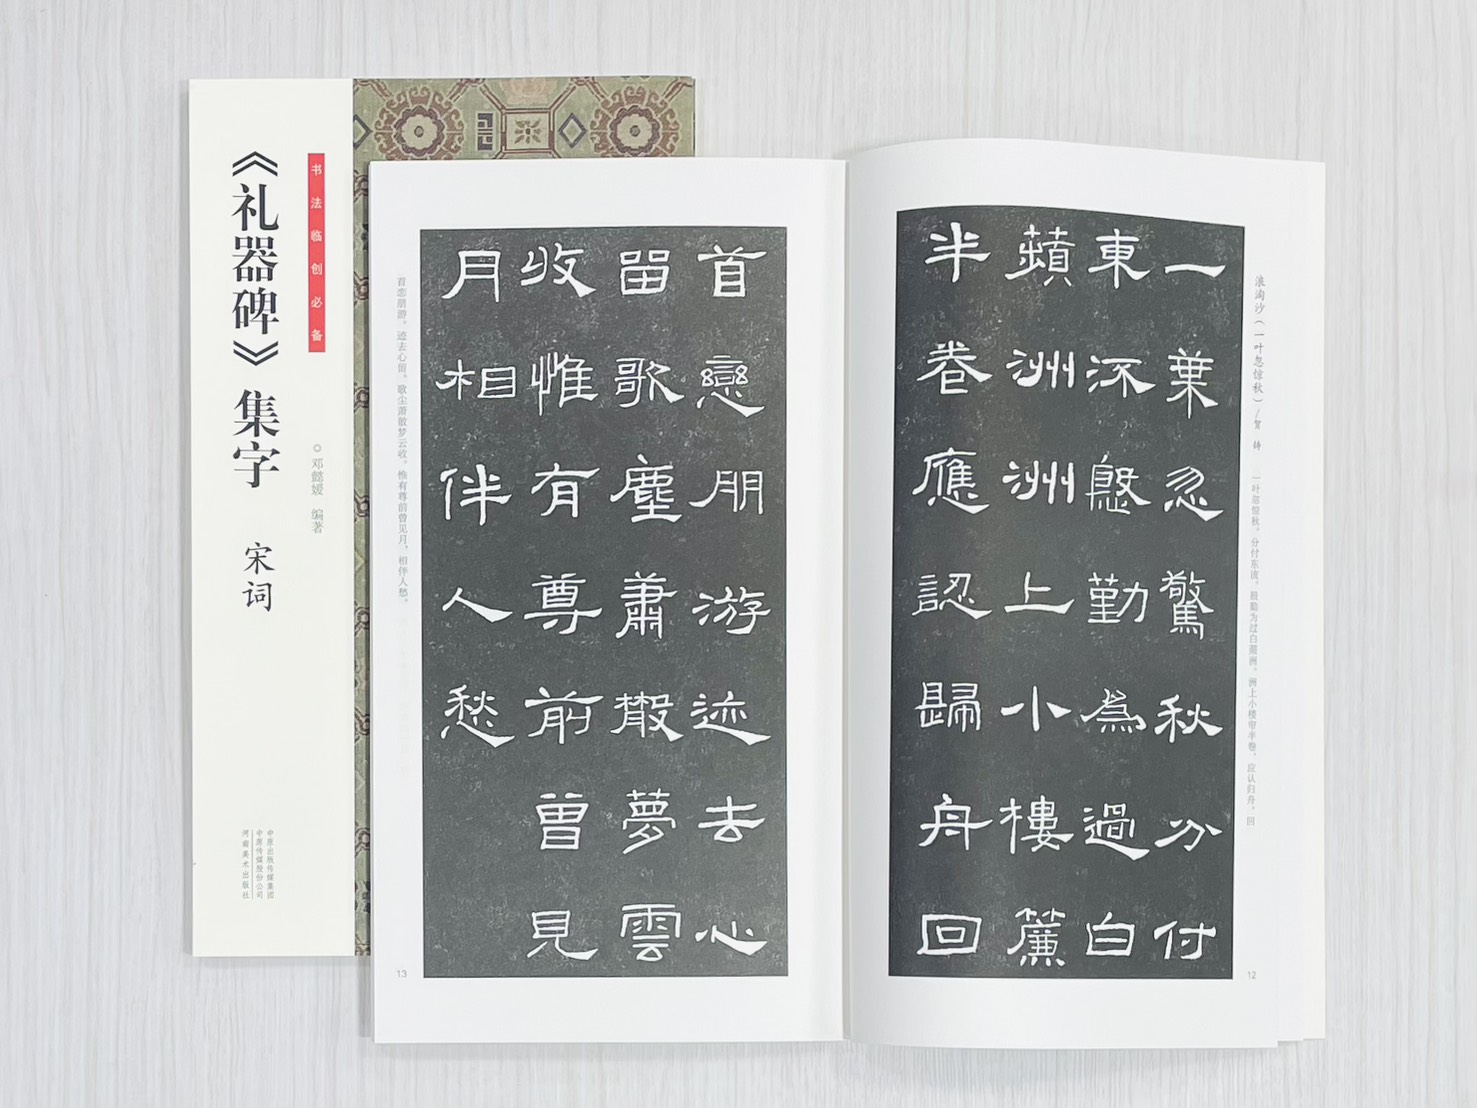 《礼器碑》集字 宋词
书法临创必备
邓懿媛 编著
中原出版传媒集团
中原传媒股份公司
河南美术出版社
浪淘沙（一叶忽惊秋）/贺 铸
一叶忽惊秋，分付东流。殷勤为过白蘋洲。洲上小楼帘半卷，应认归舟。回
一葉忽驚秋分付
東流慇勤為過白
蘋洲洲上小樓簾
半卷應認歸舟回
12
首戀朋游迹去心
留歌塵蕭散夢雲
收惟有尊前曾見
月相伴人愁
首恋朋游。迹去心留。歌尘萧散梦云收。惟有尊前曾见月，相伴人愁。
13